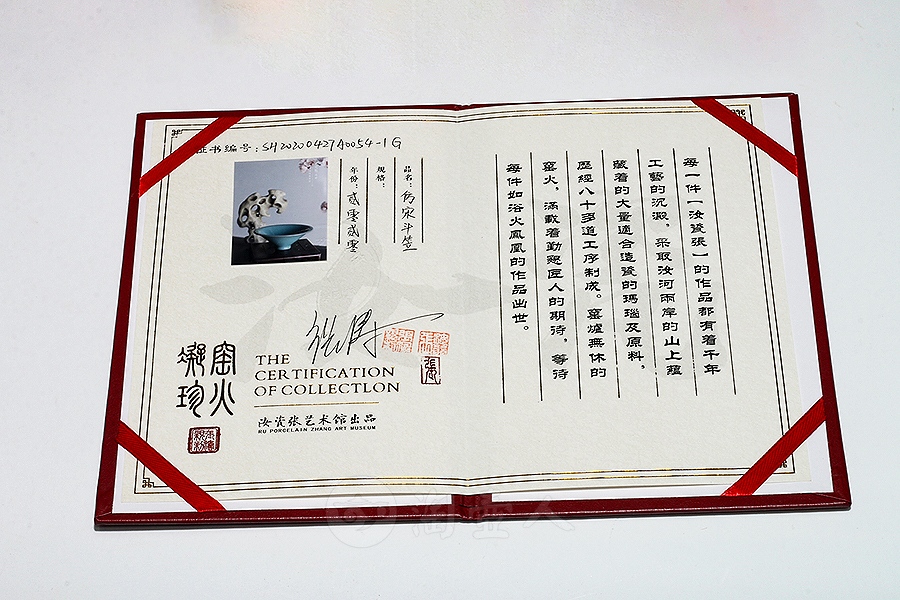 证书编号：SH20200427A0054-1G
品名：仿宋斗笠
规格：
年份：贰零贰零
窑火
凝珍
THE
CERTIFICATION
OF COLLECTLON
汝瓷张艺术馆出品
RU PORCELAIN ZHANG ART MUSEUM
每一件一汝瓷張一的作品都有着千年
工藝的沉澱，采取汝河兩岸的山上蘊
藏着的大量適合造瓷的瑪瑙及原料，
歷經八十多道工序制成。窑爐無休的
窑火，滿載着勤懇匠人的期待，等待
每件如浴火鳳凰的作品出世。